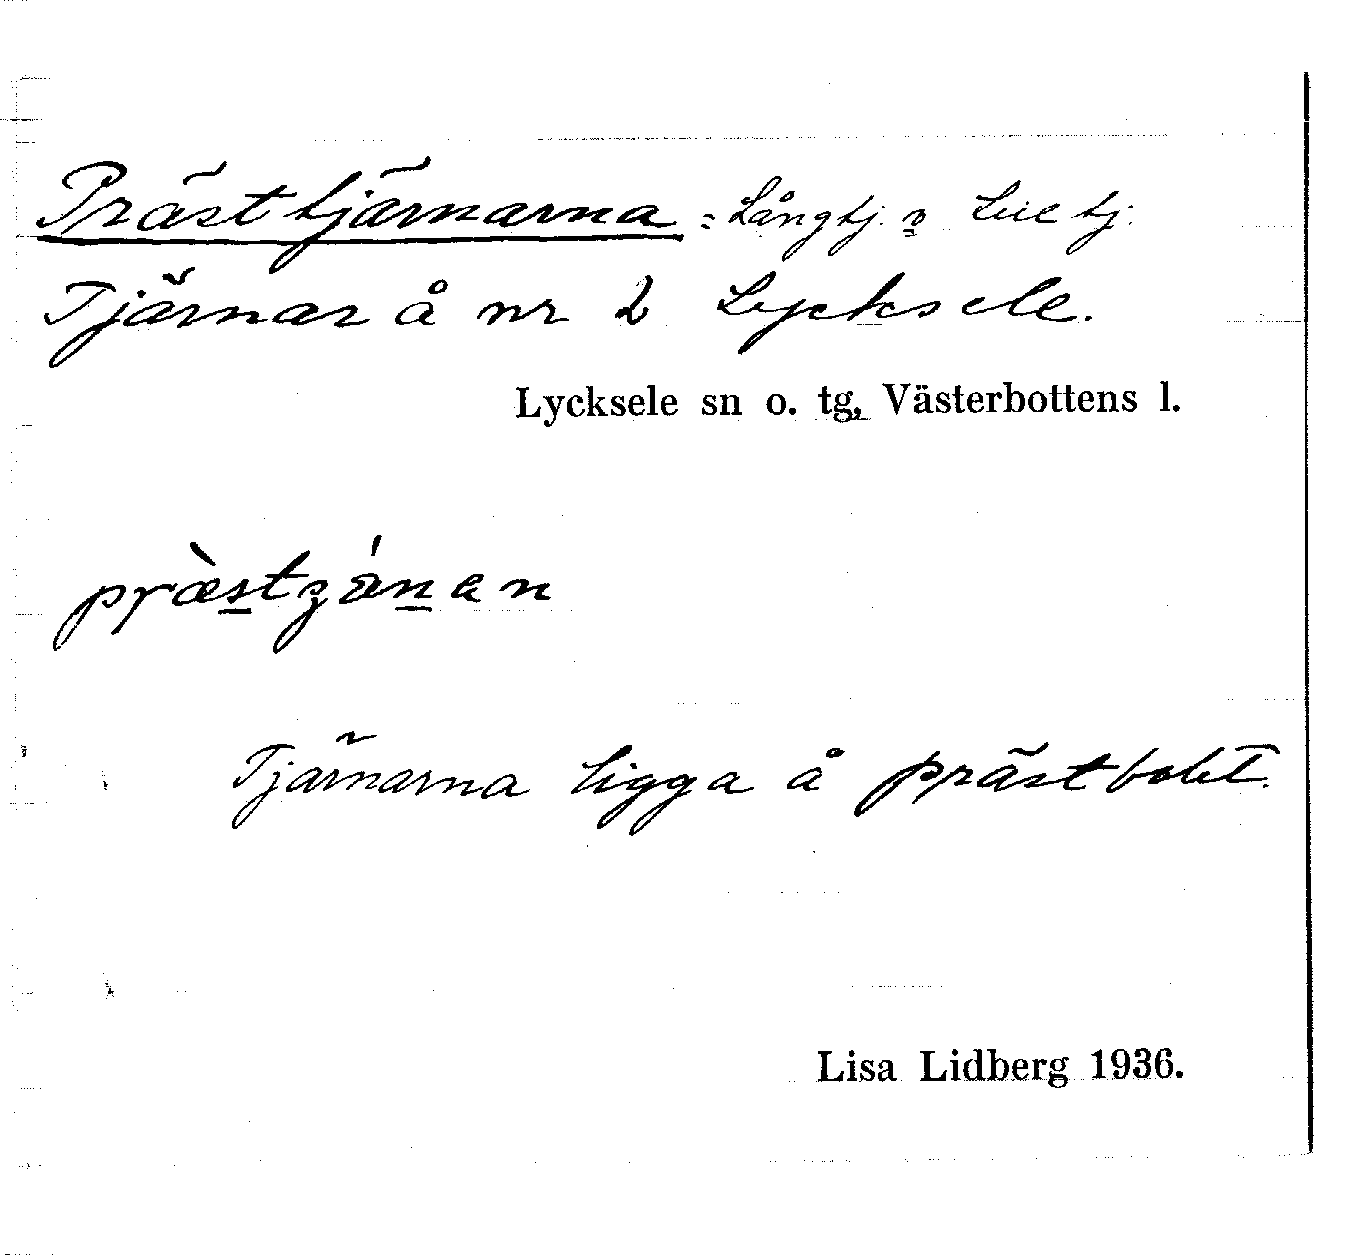 Prästtjärnarna = Långtj. o Lill tj.
Tjärnar å nr 2 Lycksele.
Lycksele sn o. tg, Västerbottens l.
Tjärnarna ligga å prästbolet.
Lisa Lidberg 1936.